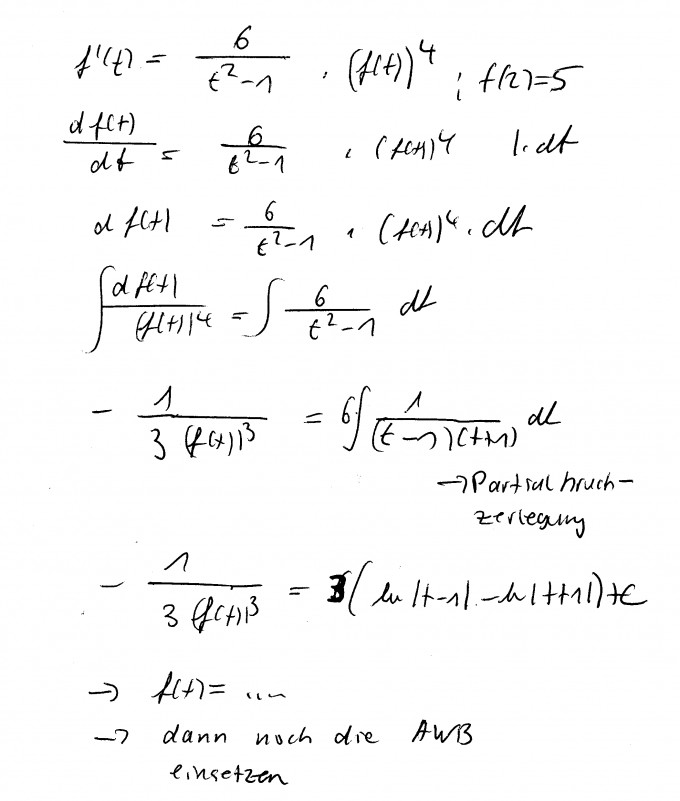 f'(t) = 6/(t²-1) · (f(t))⁴ ; f(2)=5
d f(t)/dt = 6/(t²-1) · (f(t))⁴ |· dt
d f(t) = 6/(t²-1) · (f(t))⁴ · dt
∫ d f(t)/(f(t))⁴ = ∫ 6/(t²-1) dt
- 1/(3 (f(t))³) = 6∫ 1/((t-1)(t+1)) dt
→ Partialbruch-
zerlegung
- 1/(3 (f(t))³) = 3(ln|t-1| - ln|t+1|)+C
→ f(t)= ....
→ dann noch die AWB
einsetzen